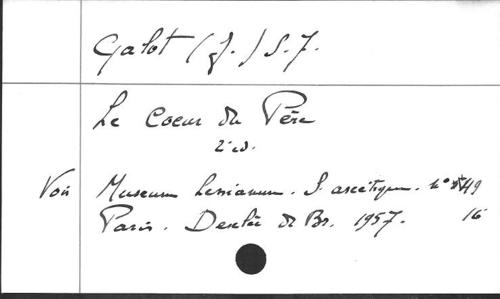 Galot (J.) S.J.
Le Coeur du Père
2e éd.
Voir Museum Lessianum. S. ascétique. N° 49
Paris. Desclée de Br. 1957. 16